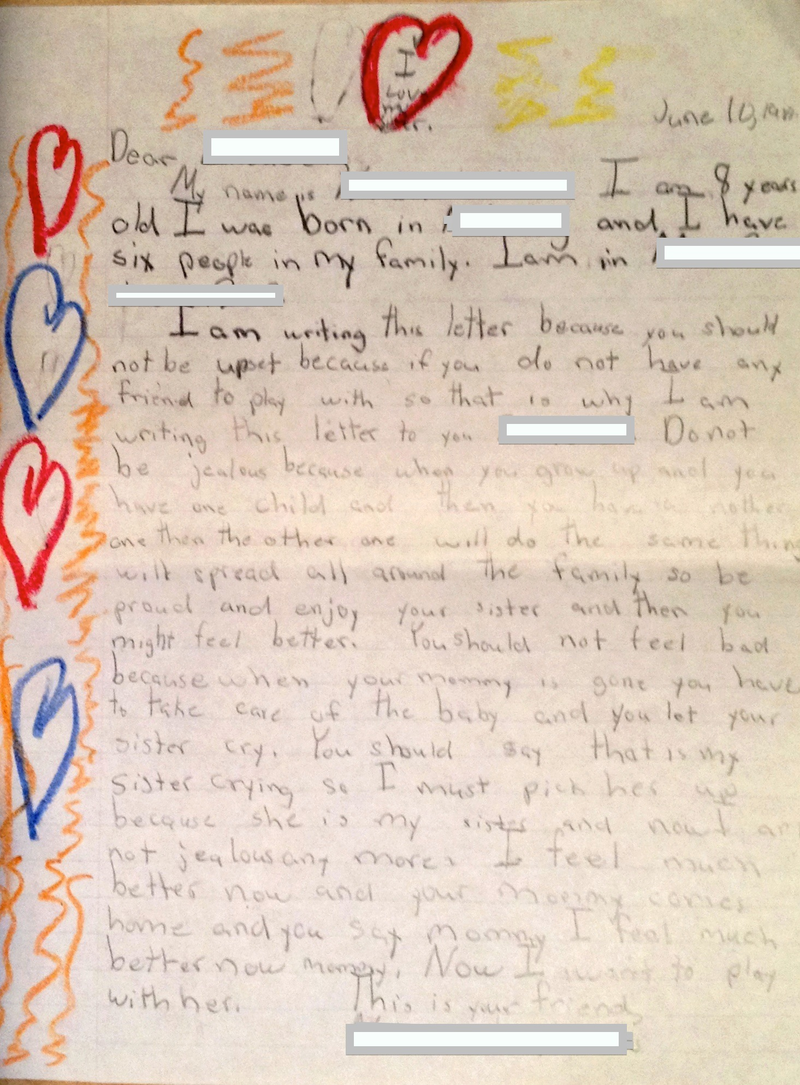 I
Love
my
June
Dear
My name is I am 8 years
old I was born in and I have
six people in my family. I am in
I am writing this letter because you should
not be upset because if you do not have any
friend to play with so that is why I am
writing this letter to you Do not
be jealous because when you grow up and you
have one child and then you have a nother
one then the other one will do the same thing
will spread all around the family so be
proud and enjoy your sister and then you
might feel better. You should not feel bad
because when your mommy is gone you have
to take care of the baby and you let your
sister cry. You should say that is my
sister crying so I must pick her up
because she is my sister and now I am
not jealous any more. I feel much
better now and your mommy comes
home and you say mommy I feel much
better now mommy. Now I want to play
with her. This is your friend,